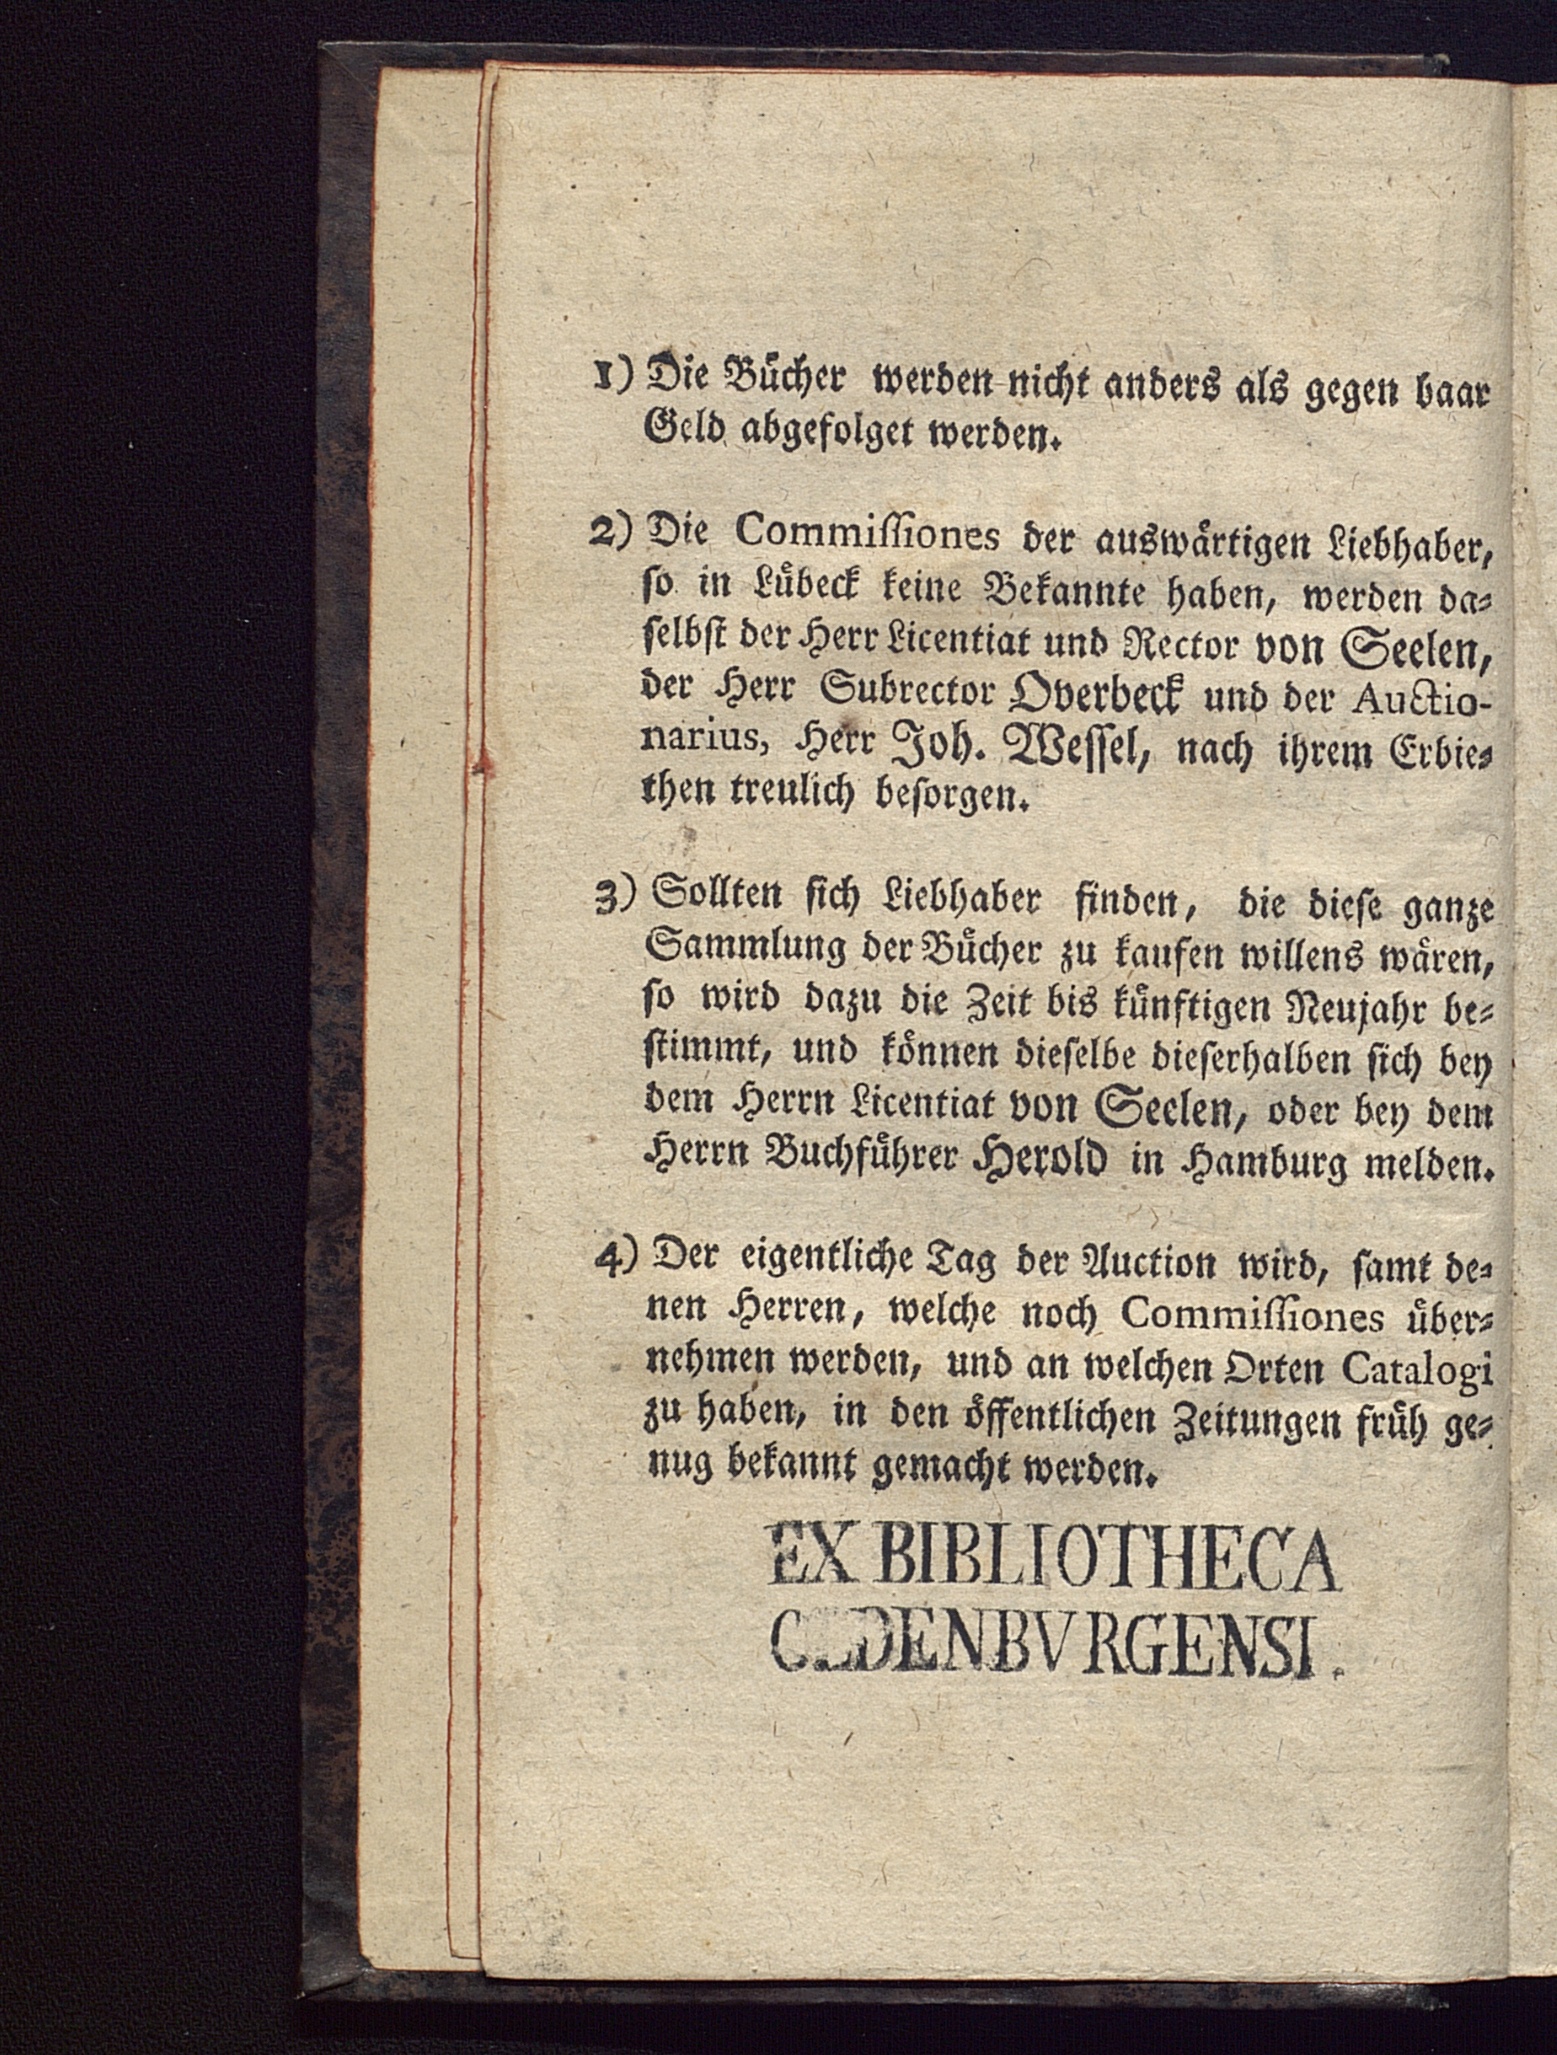 1) Die Bücher werden nicht anders als gegen baar
Geld abgefolget werden.
2) Die Commiſſiones der auswärtigen Liebhaber,
ſo in Lübeck keine Bekannte haben, werden da⸗
ſelbſt der Herr Licentiat und Rector von Seelen,
der Herr Subrector Overbeck und der Auctio-
narius, Herr Joh. Weſſel, nach ihrem Erbie⸗
then treulich beſorgen.
3) Sollten ſich Liebhaber finden, die dieſe ganze
Sammlung der Bücher zu kaufen willens wären,
ſo wird dazu die Zeit bis künftigen Neujahr be⸗
ſtimmt, und können dieſelbe dieſerhalben ſich bey
dem Herrn Licentiat von Seelen, oder bey dem
Herrn Buchführer Herold in Hamburg melden.
4) Der eigentliche Tag der Auction wird, ſamt de⸗
nen Herren, welche noch Commiſſiones über⸗
nehmen werden, und an welchen Orten Catalogi
zu haben, in den öffentlichen Zeitungen früh ge⸗
nug bekannt gemacht werden.
EX BIBLIOTHECA
OLDENBVRGENSI.